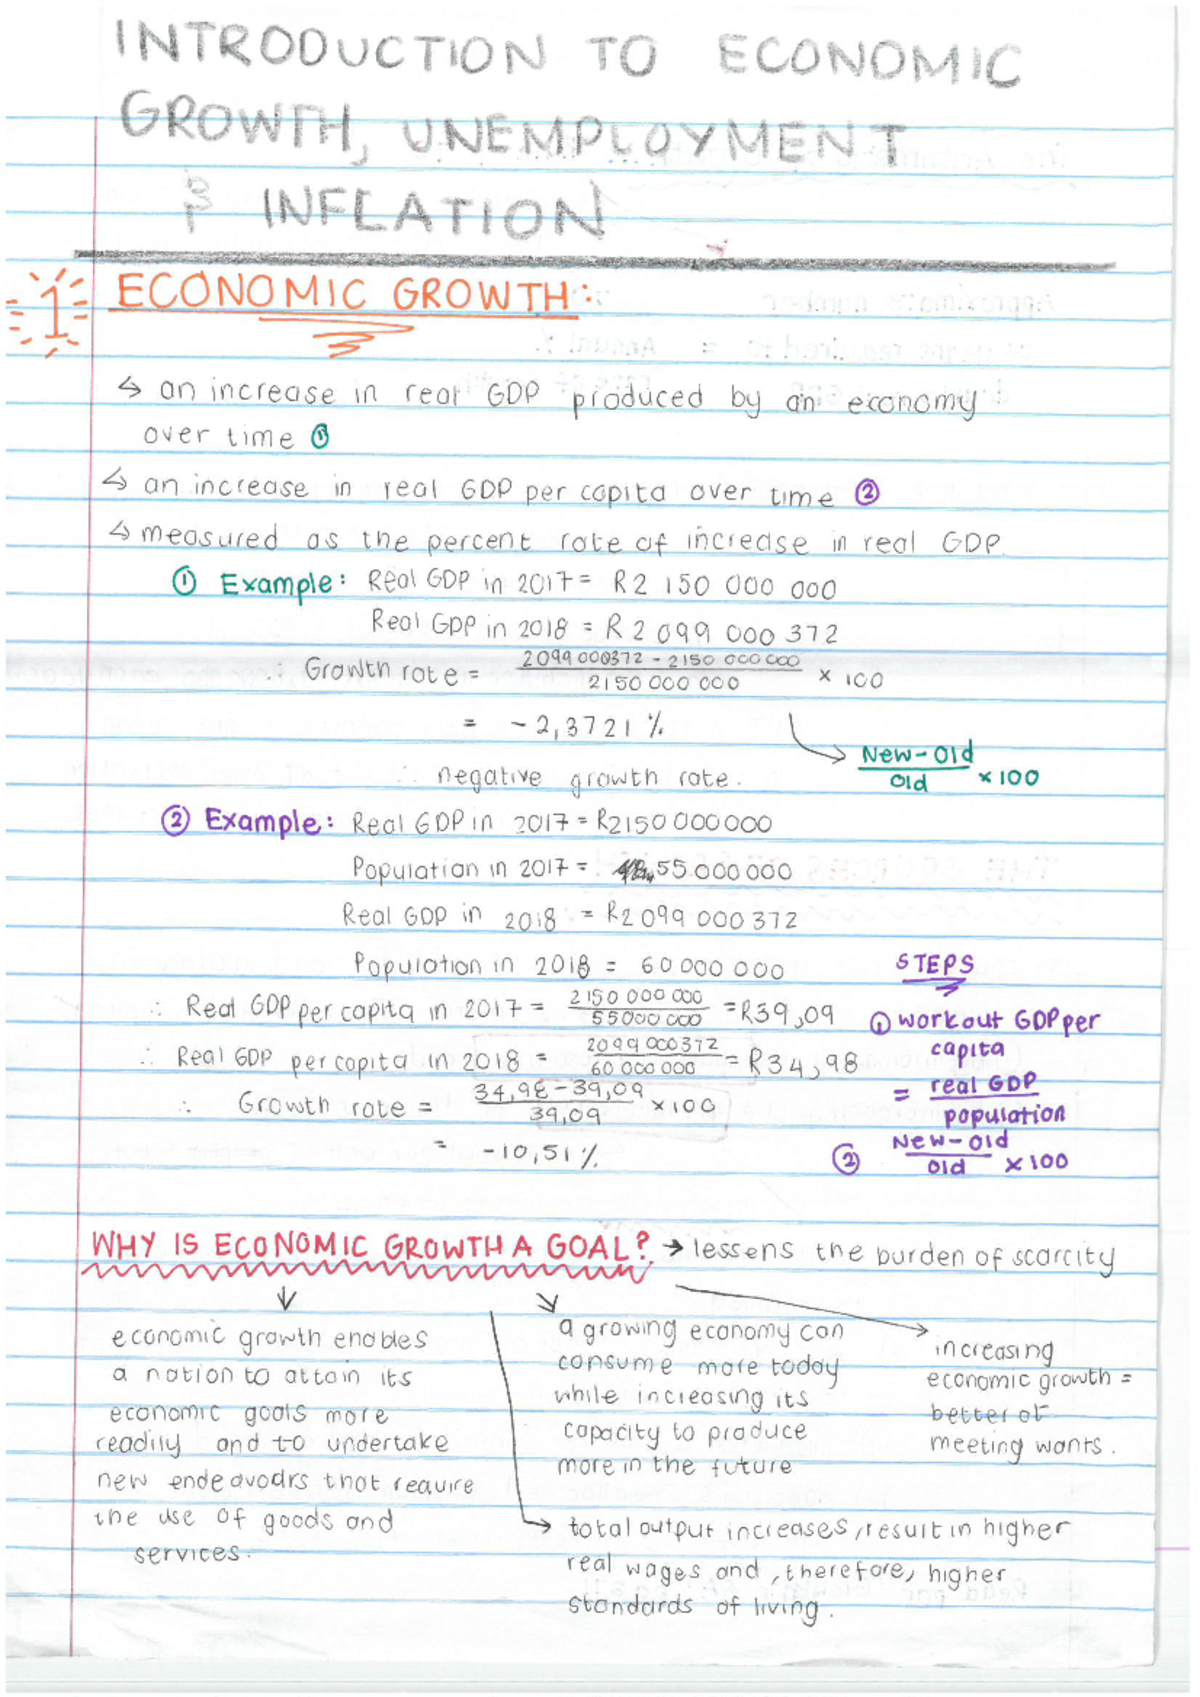 INTRODUCTION TO ECONOMIC
GROWTH, UNEMPLOYMENT
& INFLATION
1 ECONOMIC GROWTH:
↳ an increase in real GDP produced by an economy
over time ①
↳ an increase in real GDP per capita over time ②
↳ measured as the percent rate of increase in real GDP.
① Example: Real GDP in 2017 = R2 150 000 000
Real GDP in 2018 = R2 099 000 372
∴ Growth rate = 2099 000372 - 2150 000 000 / 2150 000 000 × 100
= -2,3721 %
New-Old / Old × 100
negative growth rate.
② Example: Real GDP in 2017 = R2150 000000
Population in 2017 = 55 000 000
Real GDP in 2018 = R2 099 000 372
Population in 2018 = 60 000 000
∴ Real GDP per capita in 2017 = 2150 000 000 / 55000 000 = R39,09
∴ Real GDP per capita in 2018 = 2099 000372 / 60 000 000 = R34,98
∴ Growth rate = 34,98 - 39,09 / 39,09 × 100
= -10,51 %
STEPS
① workout GDP per
capita
= real GDP / population
② New-Old / Old × 100
WHY IS ECONOMIC GROWTH A GOAL? → lessens the burden of scarcity
economic growth enables
a nation to attain its
economic goals more
readily and to undertake
new endeavours that require
the use of goods and
services.
a growing economy can
consume more today
while increasing its
capacity to produce
more in the future
increasing
economic growth =
better at
meeting wants.
→ total output increases, result in higher
real wages and, therefore, higher
standards of living.